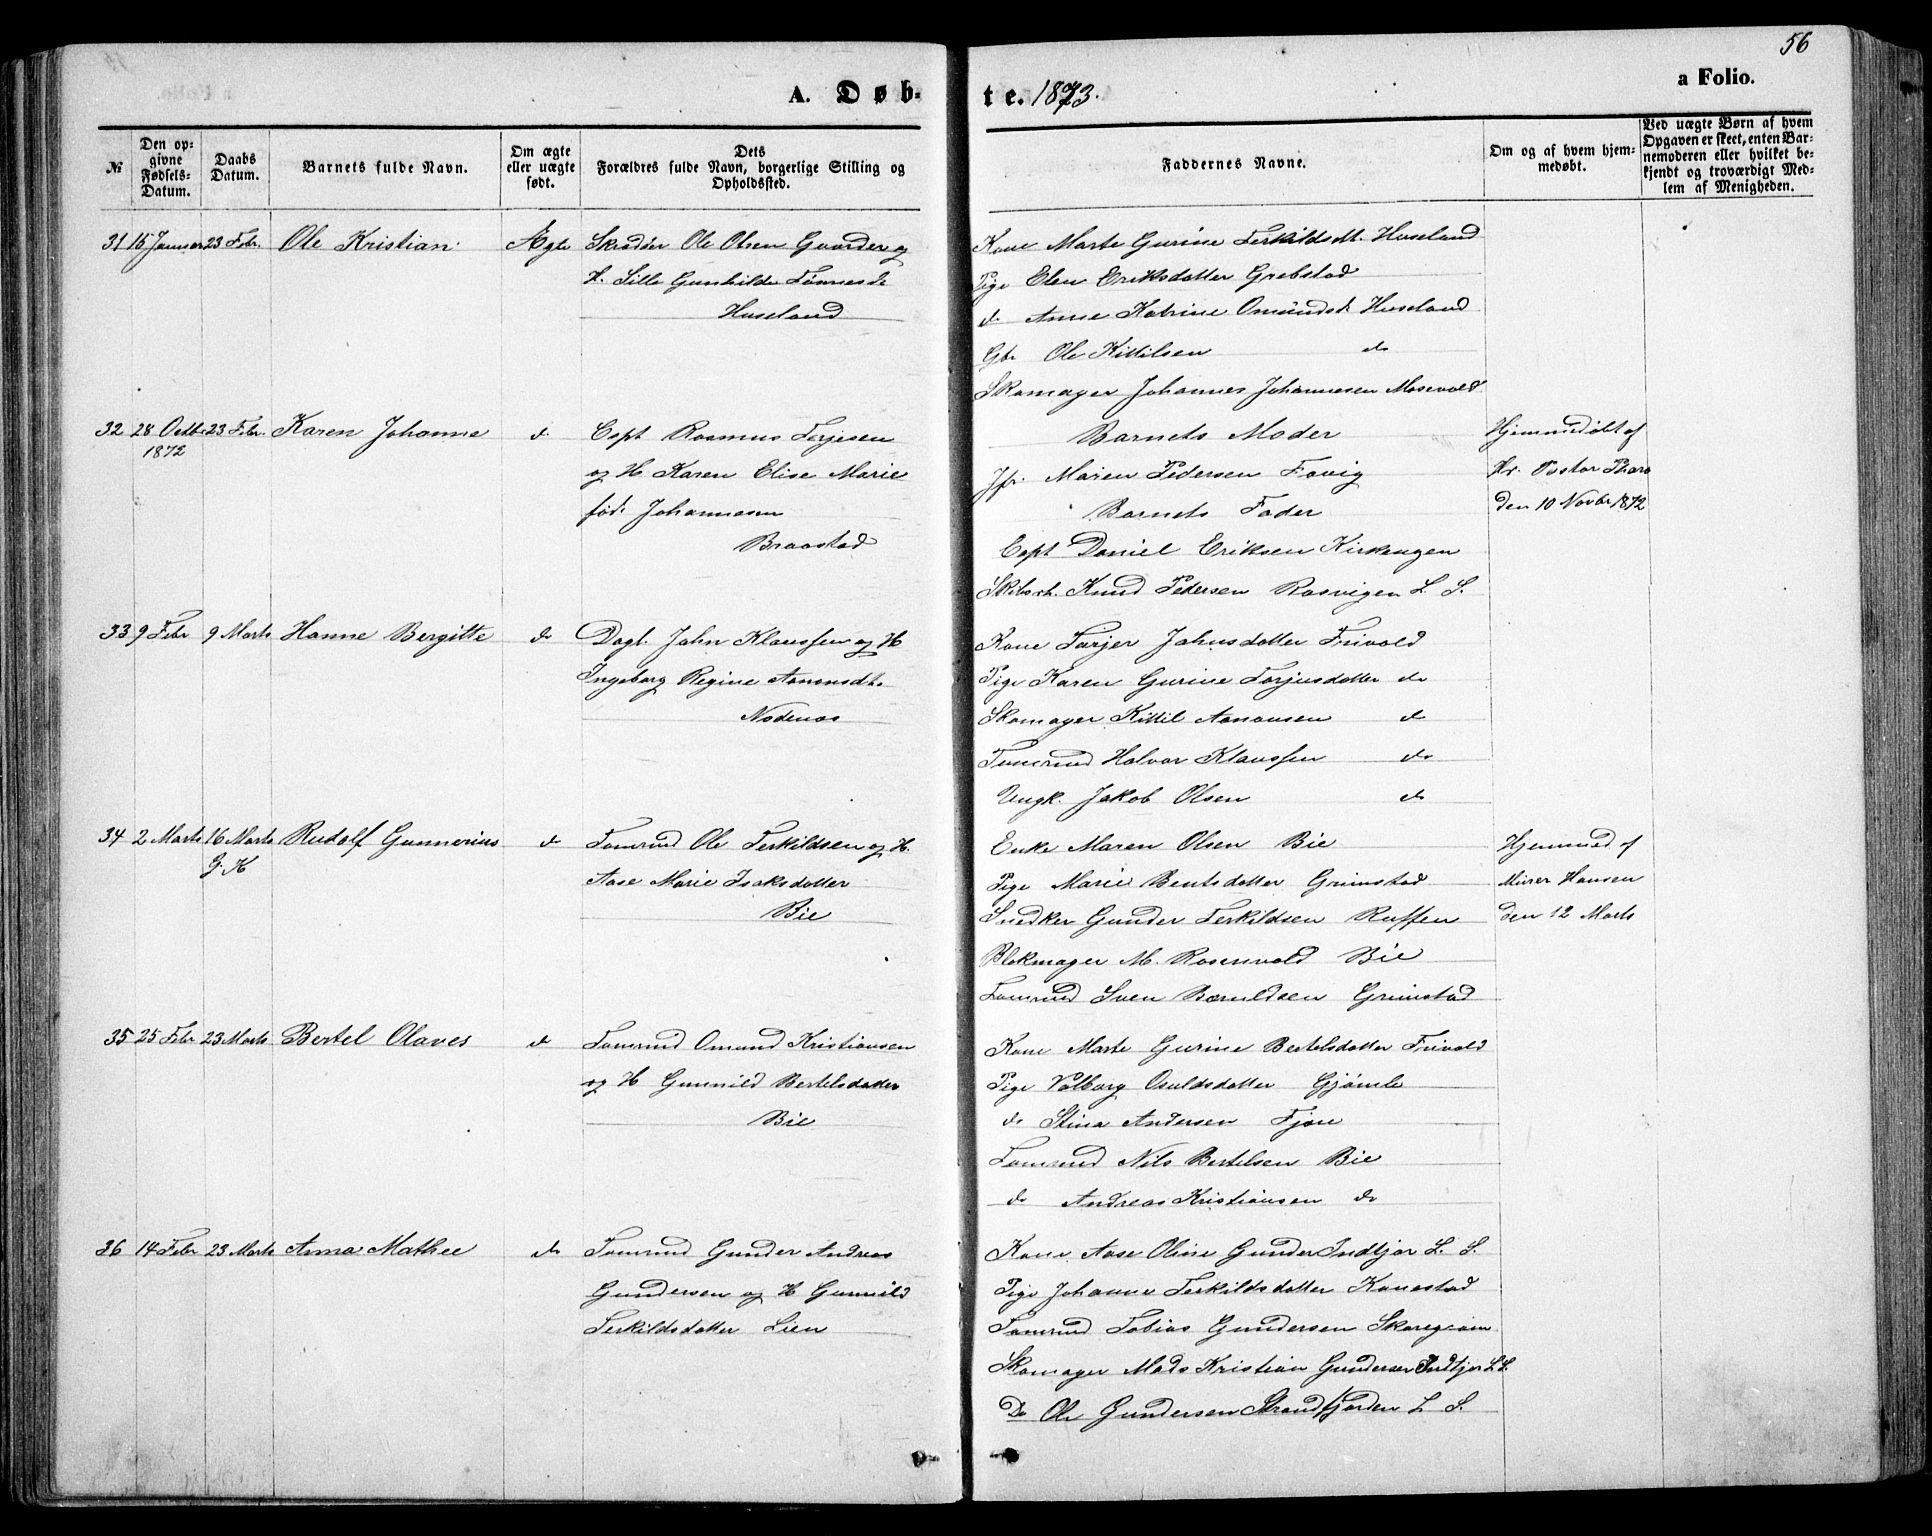 56
a Folio.
A. Døb-
te. 1873.
№
Den op-
givne
Fødsels-
Datum.
Daabs
Datum.
Barnets fulde Navn.
Om ægte
eller uægte
født.
Dets
Forældres fulde Navn, borgerlige Stilling og
Opholdssted.
Faddernes Navne.
Om og af hvem hjem-
medøbt.
Ved uægte Børn af hvem
Opgaven er skeet, enten Bar-
nemoderen eller hvilket be-
kjendt og troværdigt Med-
lem af Menigheden.
31 15 Januar 23 Febr. Ole Kristian Ægte Skræder Ole Olsen Gaarder og
H. Sille Gunhilde Tønnesd.
Huseland
Kone Marte Gurine Terkildsdt. Huseland
Pige Elen Eriksdatter Grebstad
do Anne Katrine Omundsdt Huseland
Gbr Ole Kittilsen do
Skomager Johannes Johannesen Mosevold
32 28 Octbr 23 Febr. Karen Johanne do Capt Rasmus Terjesen
1872
og H Karen Elise Marie
født Johannesen
Braastad
Barnets Moder
Jfr. Maren Pedersen Fevig
Barnets Fader
Capt Daniel Eriksen Kirkengen
Skibsrh. Knud Pedersen Rosvigen L. S.
Hjemmedøbt af
Hr. Pastor
den 10 Novbr 1872
33 9 Febr 9 Marts Hanne Bergitte do Dagl. John Klaussen og H
Ingeborg Regine Aanonsdt.
Nodenes
Kone Torjer Johnsdatter Frivold
Pige Karen Gurine Torjusdatter do
Skomager Kittil Aanonsen do
Tømrmd Halvor Klaussen do
Ungk. Jakob Olsen do
34 2 Marts 16 Marts Rudolf Gunnerius do Tømrmd Ole Terkildsen og H.
G. K
Aase Marie Isaksdatter
Bie
Enke Maren Olsen Bie
Pige Marie Bentsdatter Grimstad
Snedker Gunder Terkildsen Roffen
Blokmager M. Rosenvold Bie
Tømrmd Sven Bæruldsen Grimstad
Hjemmed af
Murer Hansen
den 12 Marts
35 25 Febr 23 Marts Bertel Olaves do Tømrmd Omund Kristiansen
og H Gunnild Bertelsdatter
Bie
Kone Marte Gurine Bertelsdatter Frivold
Pige Valborg Osuldsdatter Gjømle
do Stina Andersen Fjære
Tømrmd Nils Bertelsen Bie
do Andreas Kristiansen do
36 14 Febr 23 Marts Anna Mathee do Tømrmd Gunder Andreas
Gundersen og H Gunnild
Terkildsdatter Lien
Kone Aase Oline Gunder Indtjør L. S.
Pige Johanne Terkildsdatter Konestad
Tømrmd Tobias Gundersen Skaregrøm
Skomager Mads Kristian Gundersen Indtjør L S.
Do Ole Gundersen Strandfjorden L S.